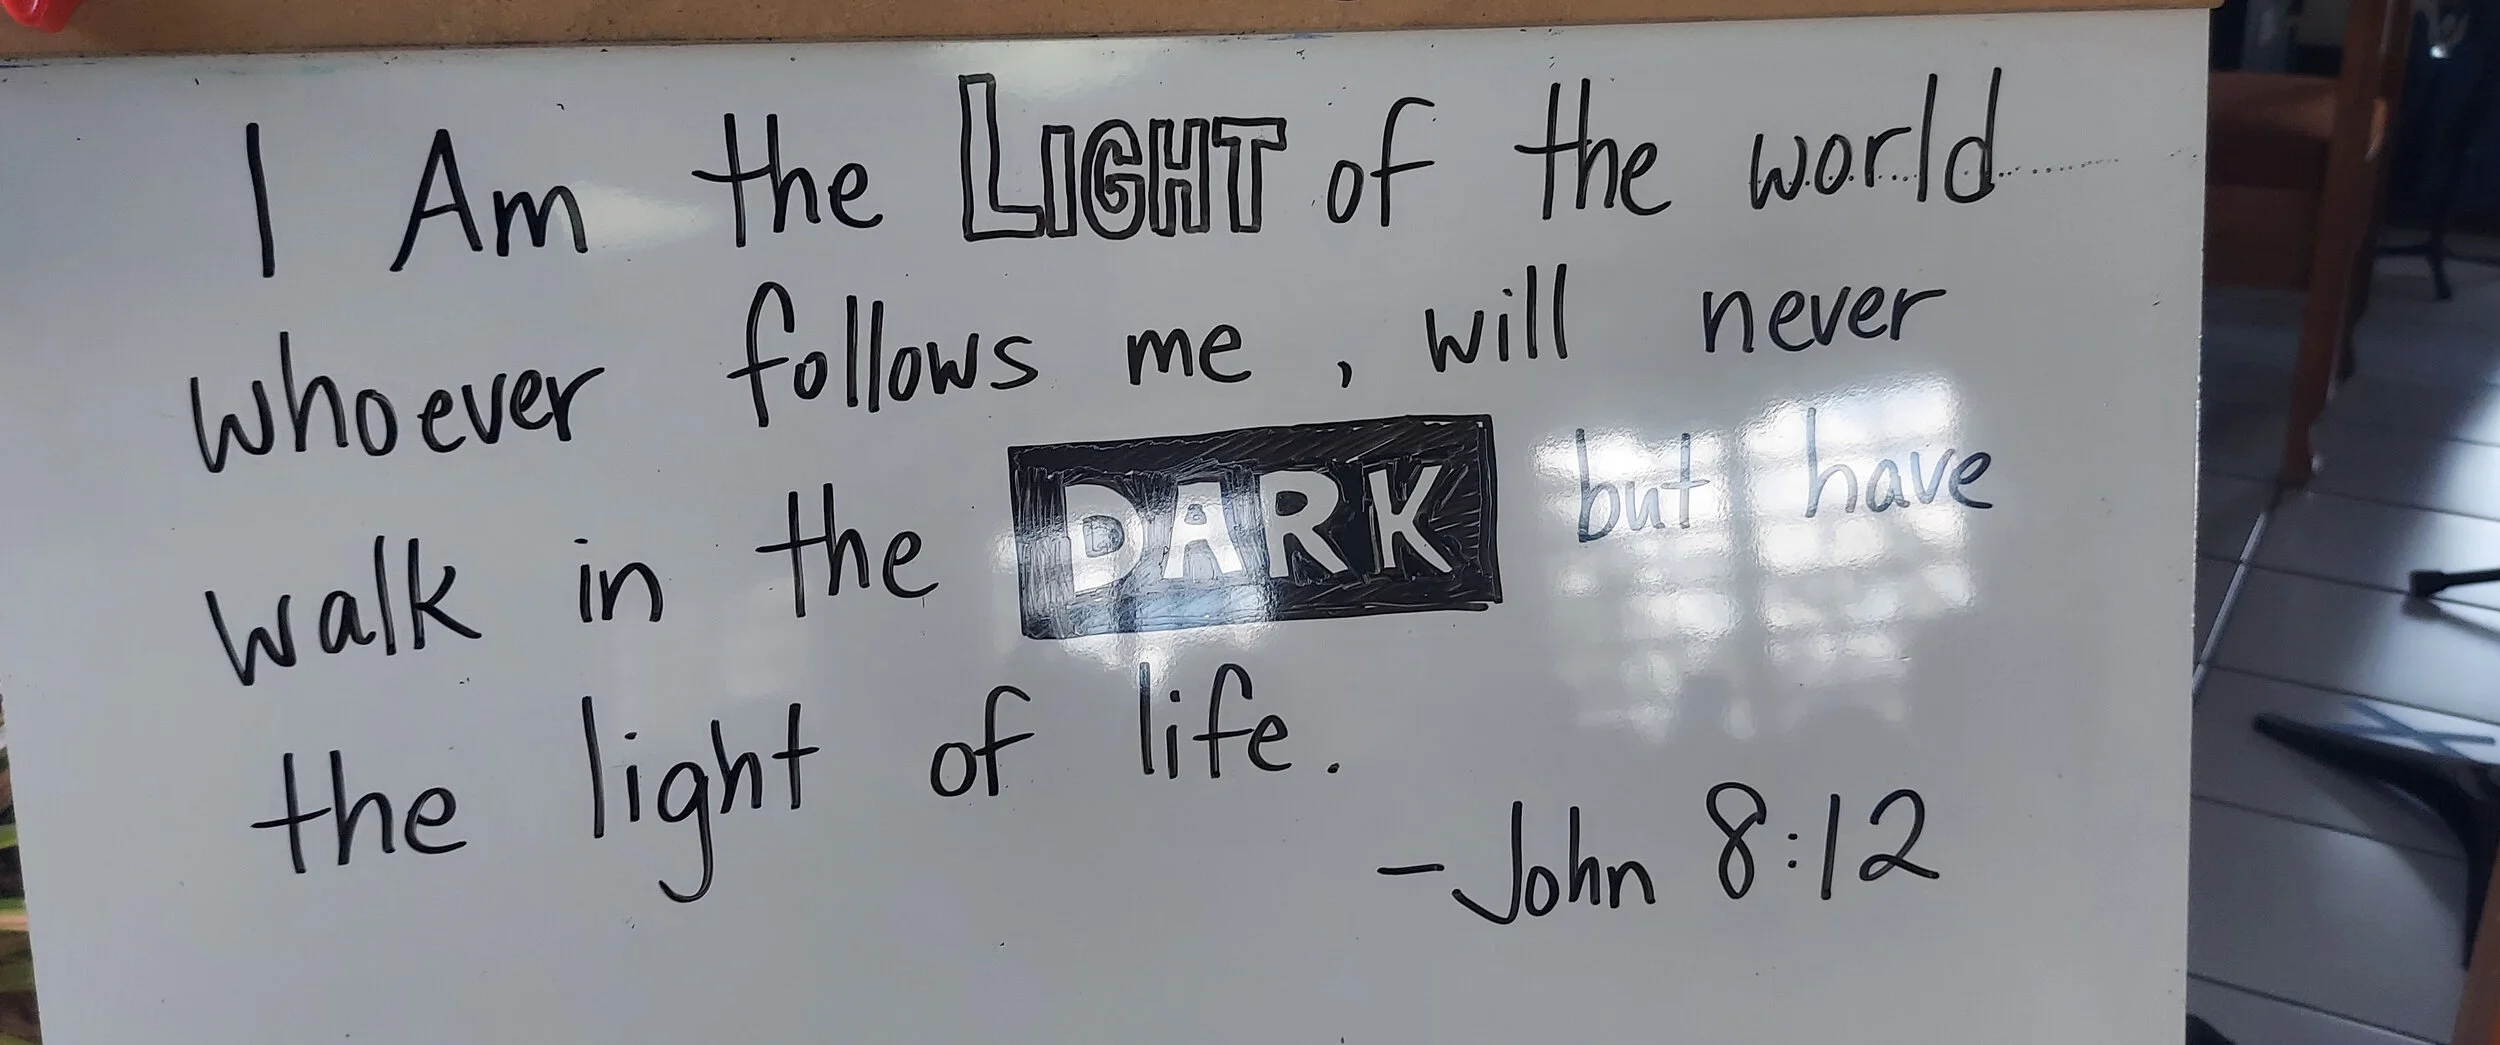 I Am the LIGHT of the world
whoever follows me, will never
walk in the DARK but have
the light of life.
-John 8:12